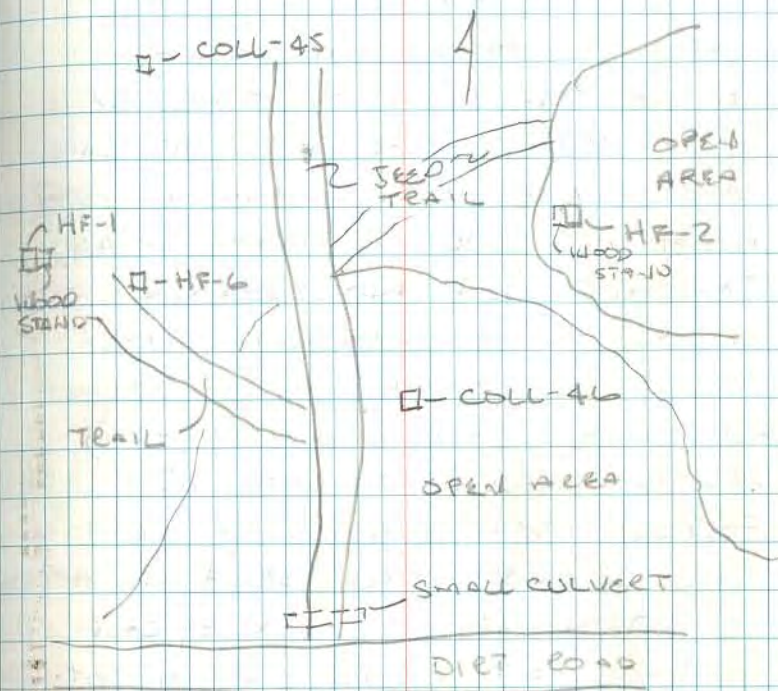 COLL-45
JEEP
TRAIL
OPEN
AREA
HF-1
HF-2
WOOD
STAND
HF-6
WOOD
STAND
COLL-46
TRAIL
OPEN AREA
SMALL CULVERT
DIRT ROAD